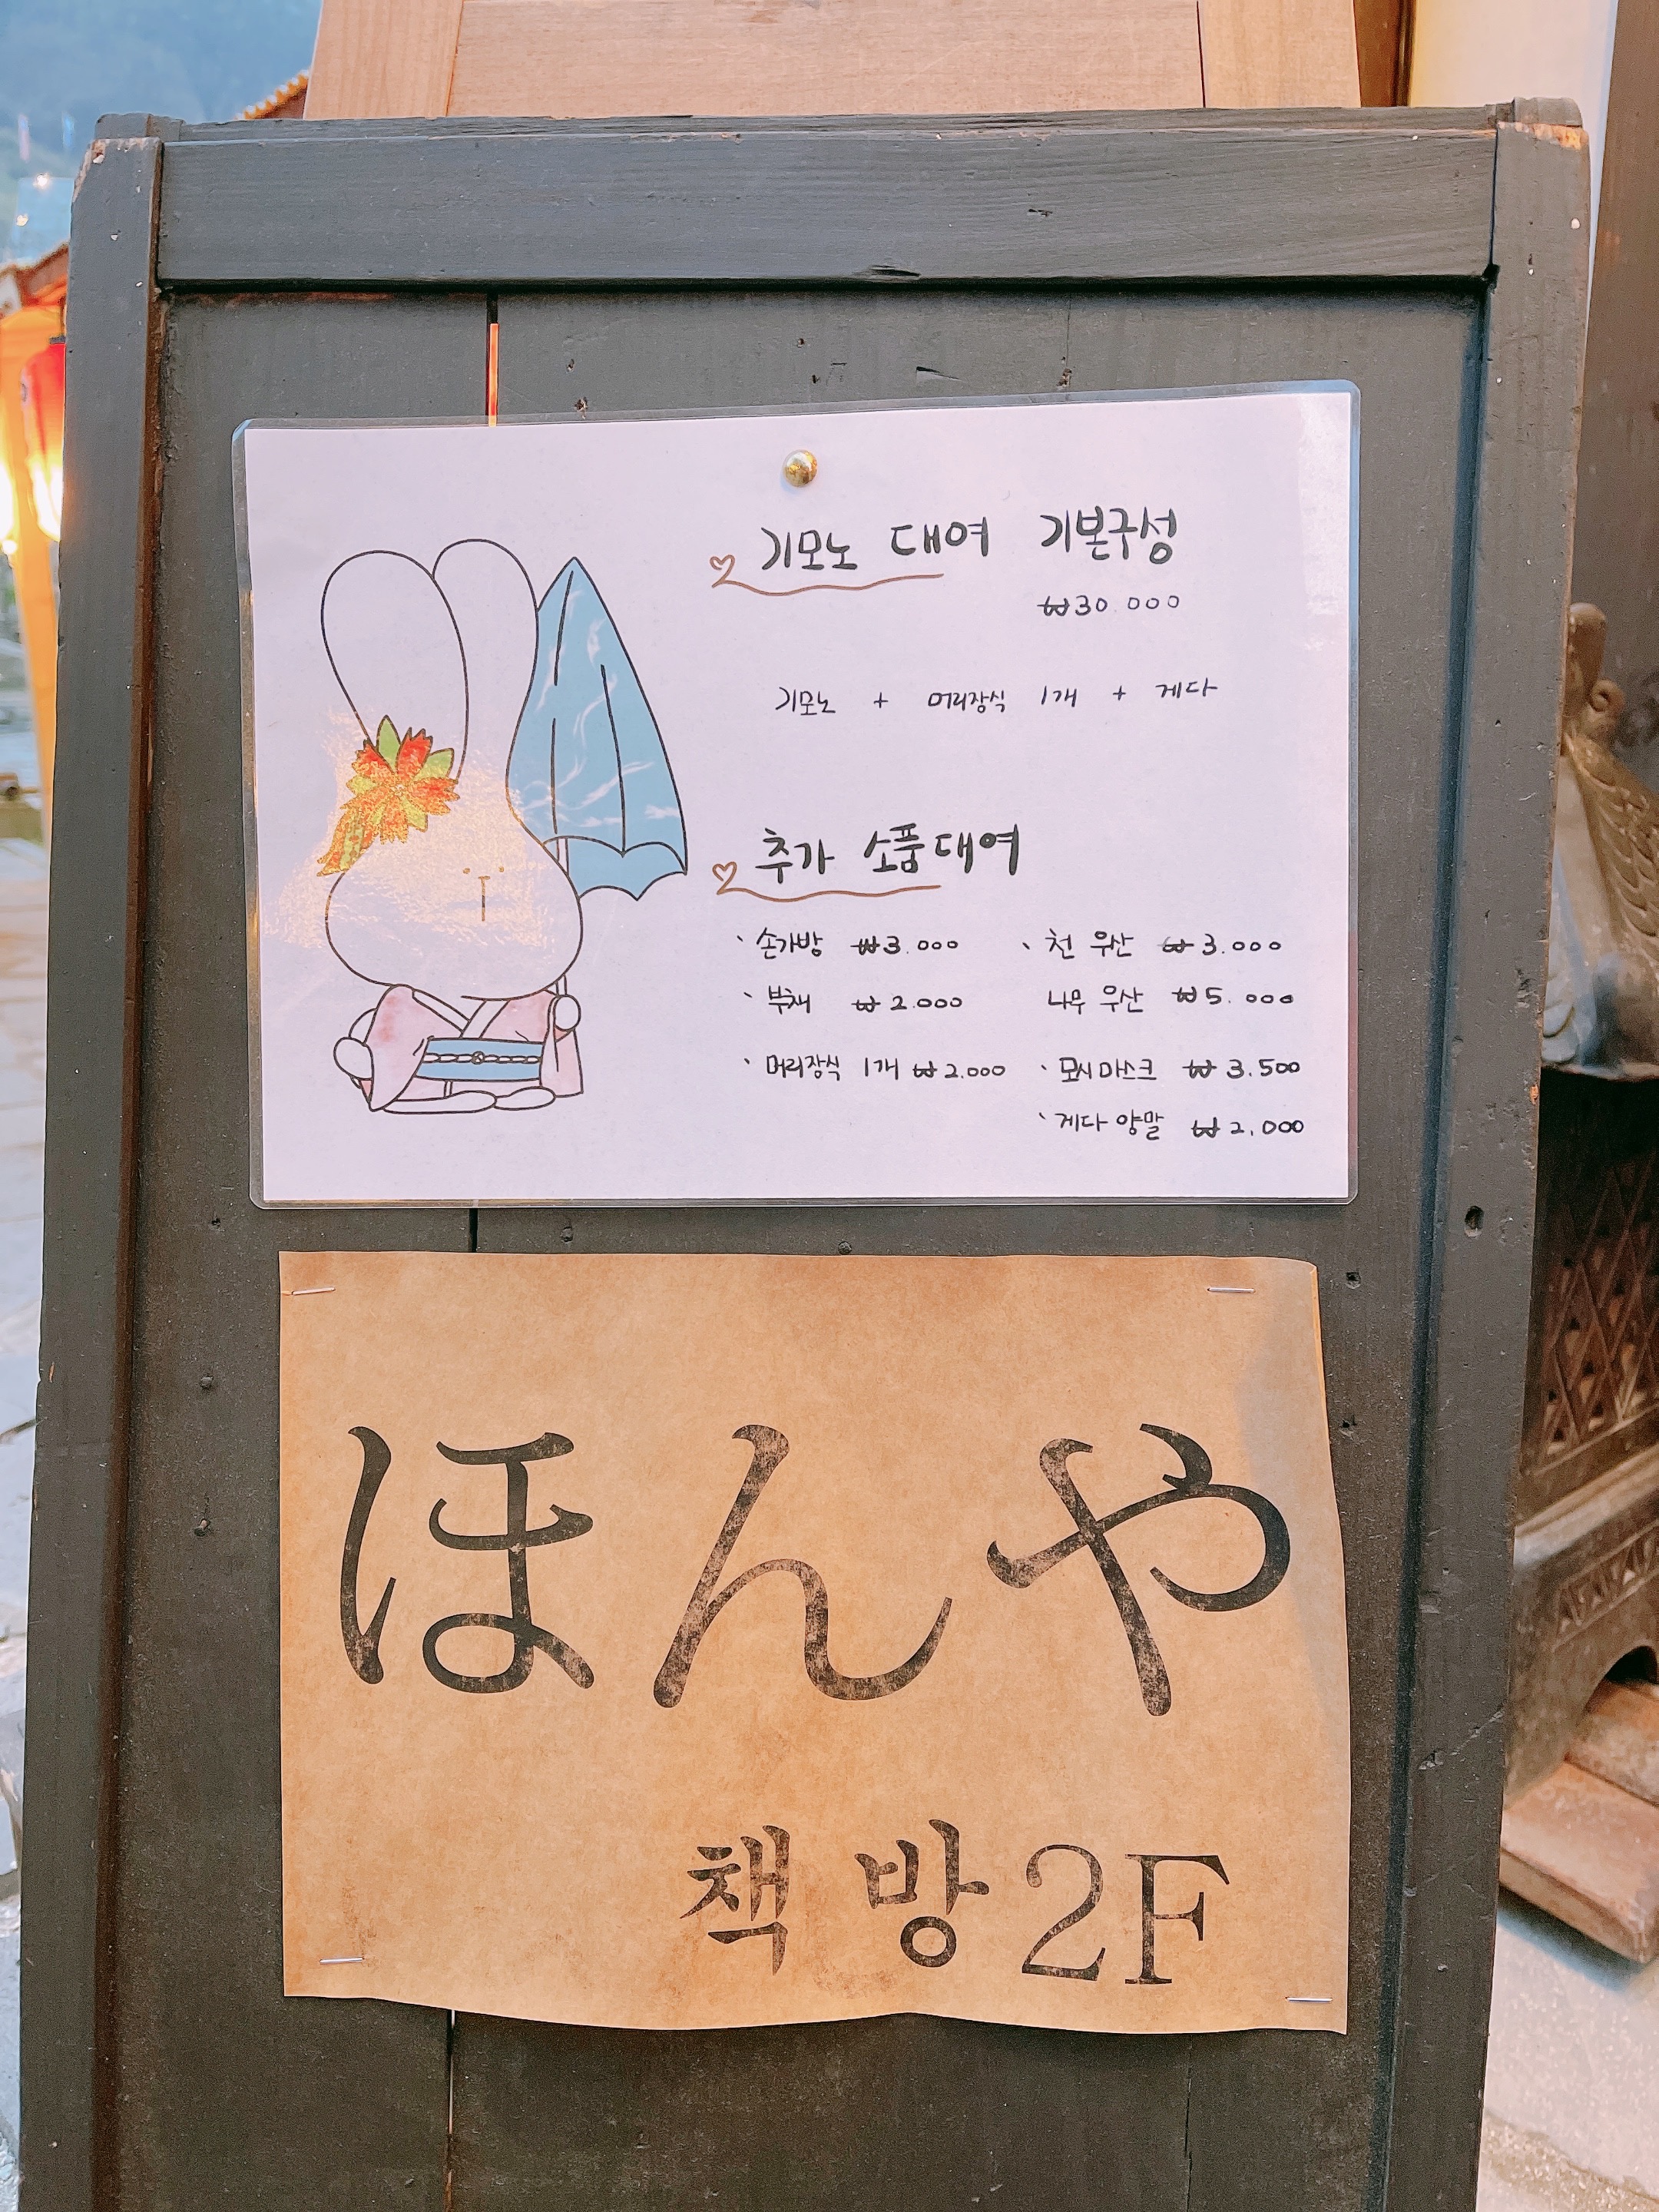 기모노 대여 기본구성
₩30.000
기모노 + 머리장식 1개 + 게다
추가 소품대여
· 손가방 ₩3.000
· 부채 ₩2.000
· 머리장식 1개 ₩2.000
· 천 우산 ₩3.000
나무 우산 ₩5.000
· 모시마스크 ₩3.500
· 게다 양말 ₩2.000
ほんや
책방2F